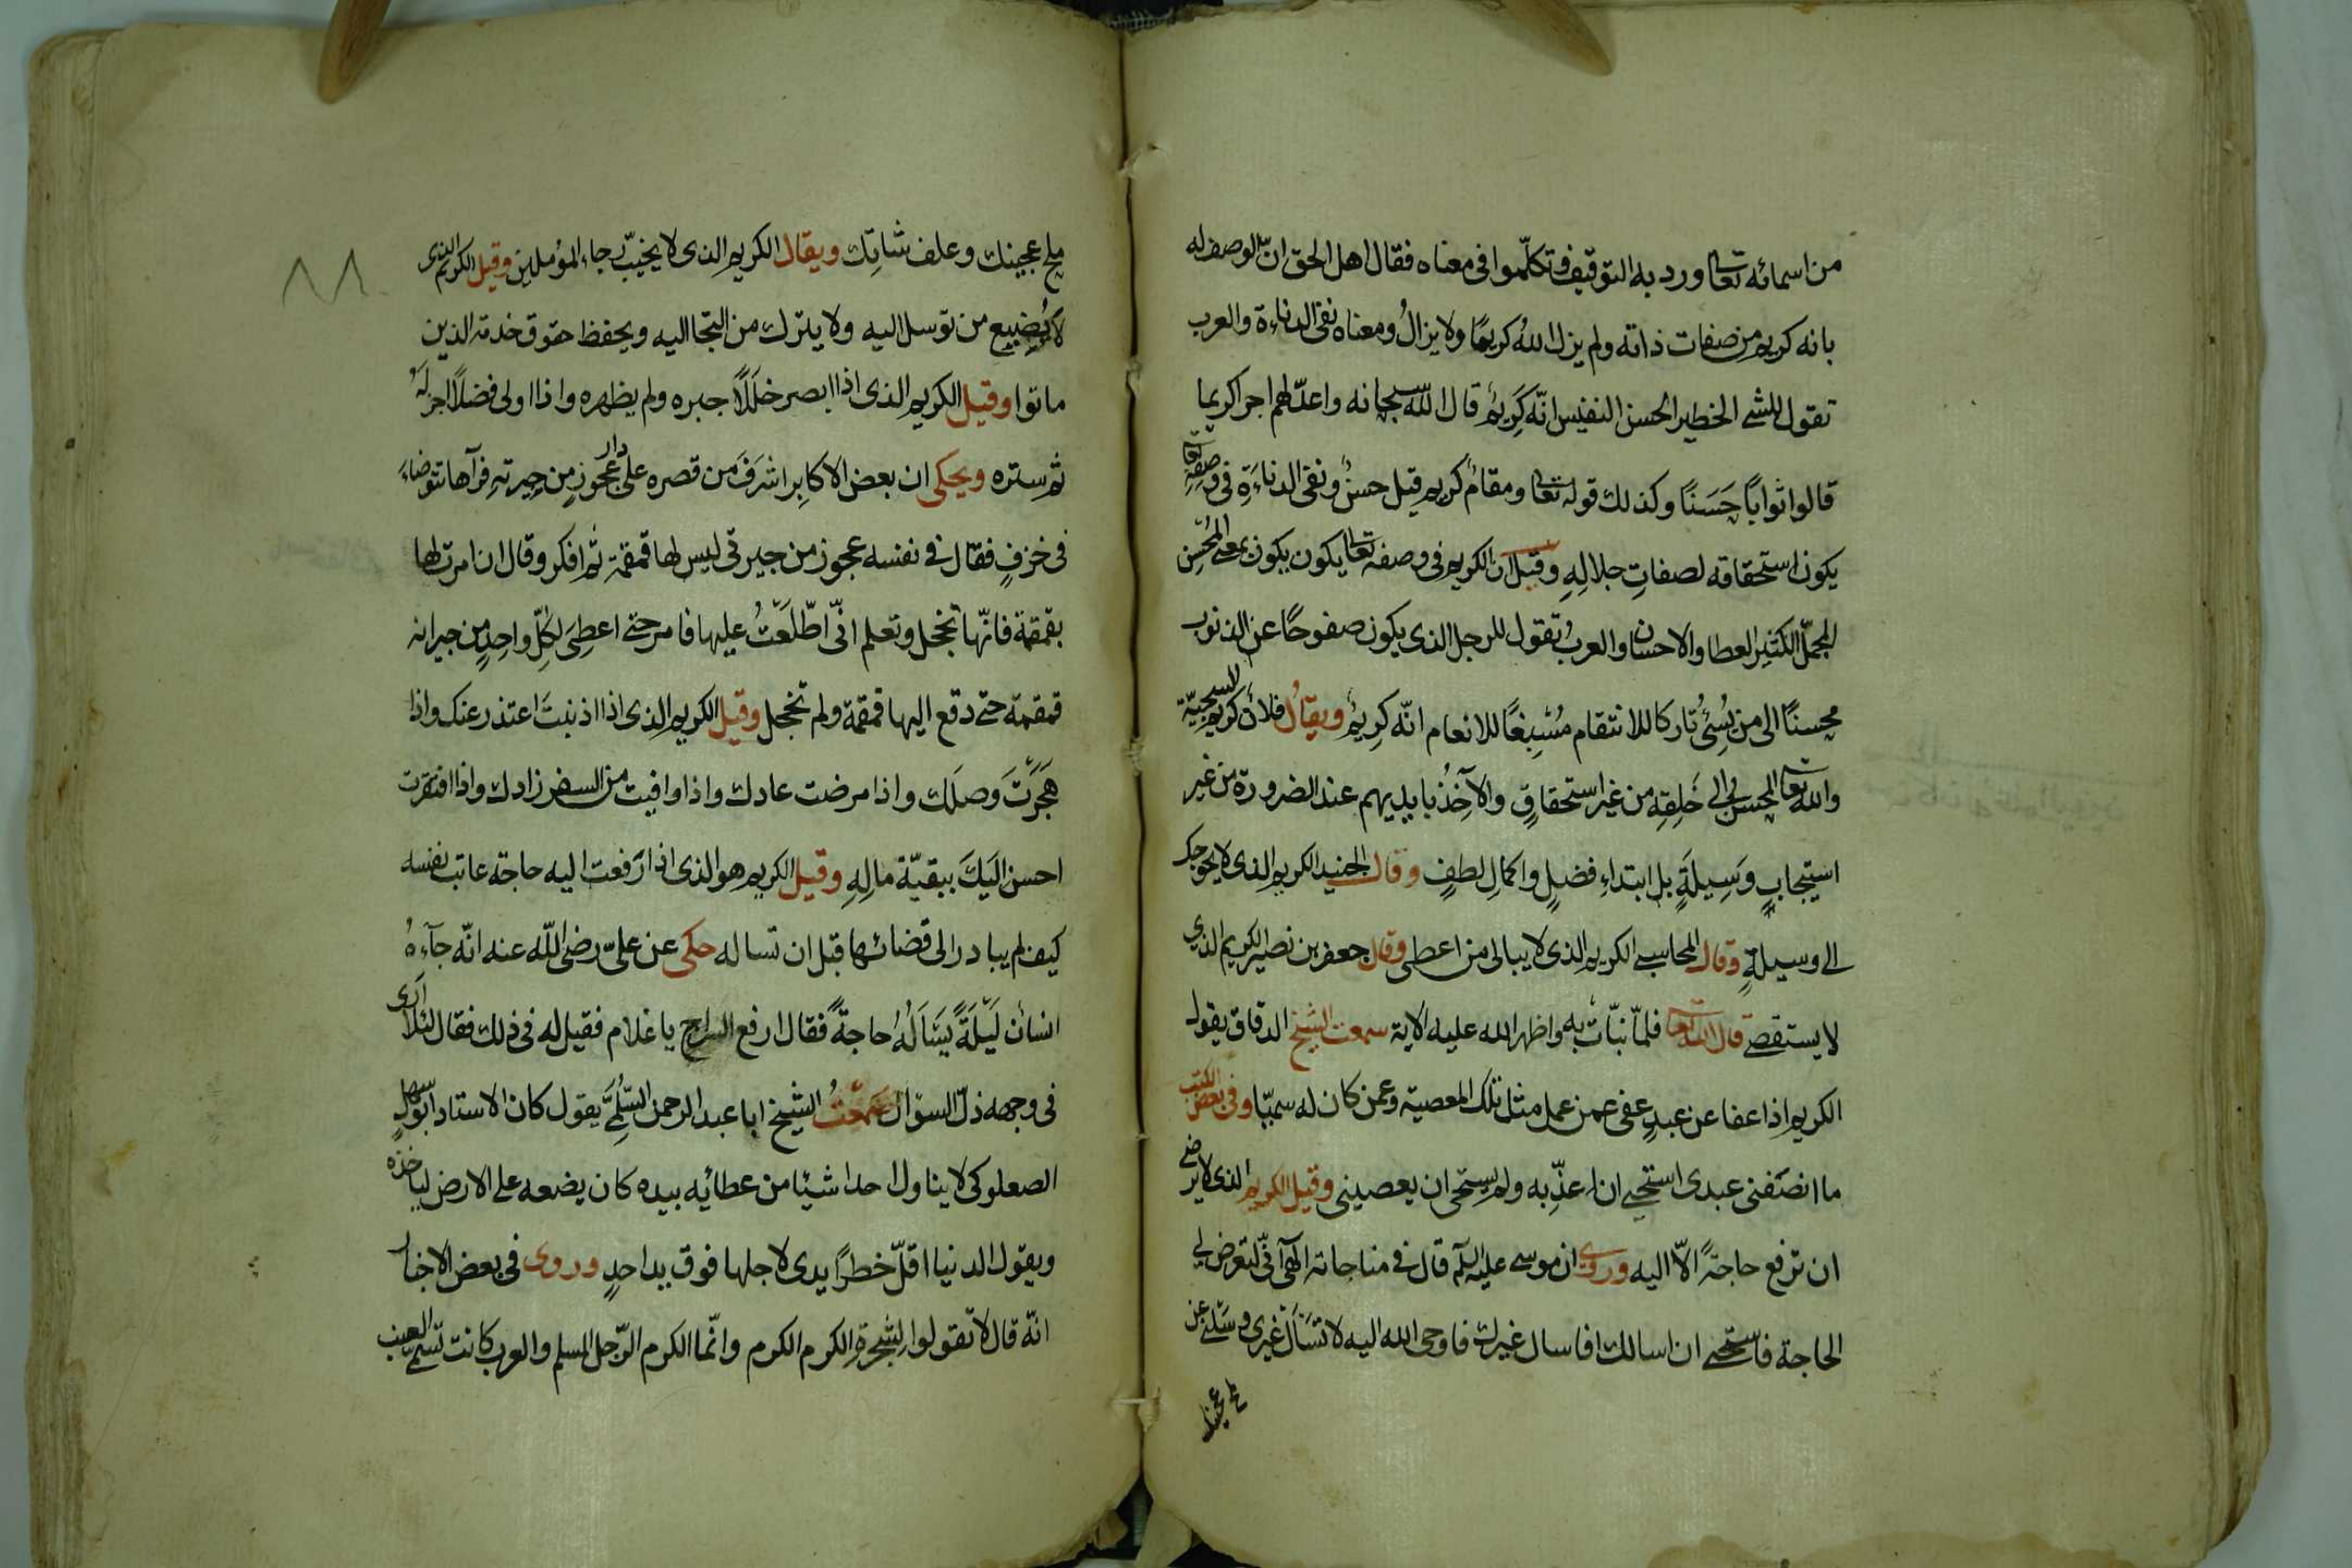 من اسمائه تعالى ورد به التوقيف وتكلّموا فى معناه فقال اهل الحق انّ الوصف له
بانه كريم من صفات ذاته ولم يزل اللهُ كريمًا ولا يزالُ ومعناه نفى الدناءة والعرب
تقول للشئ الخطير الحسن النفيس انّه كَرِيمٌ قال اللّه سبحانه واعدّ لهم اجرا كريما
قالوا ثوابًا حَسَنًا وكذلك قوله تعالى ومقامٌ كريم قيل حسنٌ ونفى الدناءَةِ فى وصفِهِ تعالى
يكون استحقاقه لصفاتِ جلالِهِ وقيل ان الكريم فى وصفه تعالى يكون يكون بمعنى المُحْسِن
المجمّل الكثير العطا والاحسان والعربُ تقول للرجل الذى يكون صفوحًا عن الذنوب
محسنًا الى من يُسِئُ تاركا للانتقام مُسْبِغًا للانعام انّه كرِيمٌ ويقالُ فلانٌ كريم السجيّة
والله تعالى المحسن الى خَلقِهِ من غير استحقاقٍ والآخِذُ بايديهم عند الضرورة من غير
استيجابٍ وَسِيلَةٍ بل ابتداءِ فضلٍ واكمالِ لطفٍ وقال الجنيد الكريم الذى لا يحوجك
الى وسيلةٍ وقال المحاسبى الكريم الذى لا يبالى من اعطى وقال جعفر بن نصير الكريم الذي
لا يستقصى قال الله تعالى فلمّا نبّأت به واظهر الله عليه الاية سمعت الشيخ الدقاق يقول
الكريم اذا عفا عن عبدٍ عفى عمن عمل مثل تلك المعصية وعمن كان له سميّا وفى بعض الكتب
ما انصَفنى عبدى استحيى ان اعذّبه ولم يستحى ان يعصينى وقيل الكريم الذى لا يرضى
ان ترفع حاجةً الاّ اليه وروى ان موسى عليه السلم قال فى مناجاته الهى انّى لتعرض لى
الحاجة فاستحيى ان اسالك افاسال غيرك فاوحى الله اليه لا تسَالْ غيرى وسَلنى عن
ملح عجينك
ملح عجينك وعلف شاتِك ويقال الكريم الذى لا يخيّب رجاء المؤملين وقيل الكريم الذى
لا يُضيع من توسل اليه ولا يترك من التجا اليه ويحفظ حقوق خدمة الذين
ماتوا وقيل الكريم الذى اذا ابصر خلَلًا جبره ولم يظهره واذا اولى فضلًا اجزلَهُ
ثم ستره ويحكى ان بعض الاكابِر اشرَفَ من قصره على دار عجوزٍ من جيرتهِ فرآها تتوضاءَ
فى خزفٍ فقال فى نفسه عجوز من جيرتى ليس لها قمقمة ثم افكر وقال ان امرت لها
بقمقمة فانّها تخجل وتعلم انّى اطّلَعَتُ عليها فامر حتى اعطِىَ لكِلّ واحِدٍ من جيرانه
قمقمة حتى دفع اليها قمقمة ولم تخجل وقيل الكريم الذى اذا اذنبتَ اعتذر عنك واذا
هَجَرَتَ وَصلَك واذا مرضت عادك واذا وافيت من السفر زادك واذا افتقرت
احسن الَيكَ ببقيّة مالِهِ وقيل الكريم هو الذى اذا رَفعت اليه حاجة عاتب نفسه
كيف لم يبادر الى قضائها قبل ان تساله حكى عن علىّ رضى اللّه عنه انّه جآءهُ
انسان لَيْلَةً يَسَالُهُ حاجةً فقال ارفع السراج يا غلام فقيل له فى ذلك فقال لئلا ارى
فى وجهه ذلّ السوال سمعتُ الشيخ ابا عبد الرحمن السُّلَمِىَّ يقول كان الاستاد ابو سهلٍ
الصعلوكى لا يناول احدا شيئا من عطائيه بيده كان يضعه على الارض لياخذه
ويقول الدنيا اقلّ خطرًا يدى لاجلها فوق يد احدٍ وروى فى بعض الاخبار
انّه قال لا تقولوا لِشجرةِ الكرم الكرم وانّما الكرم الرّجل المسلم والعرب كانت تسمى العنب